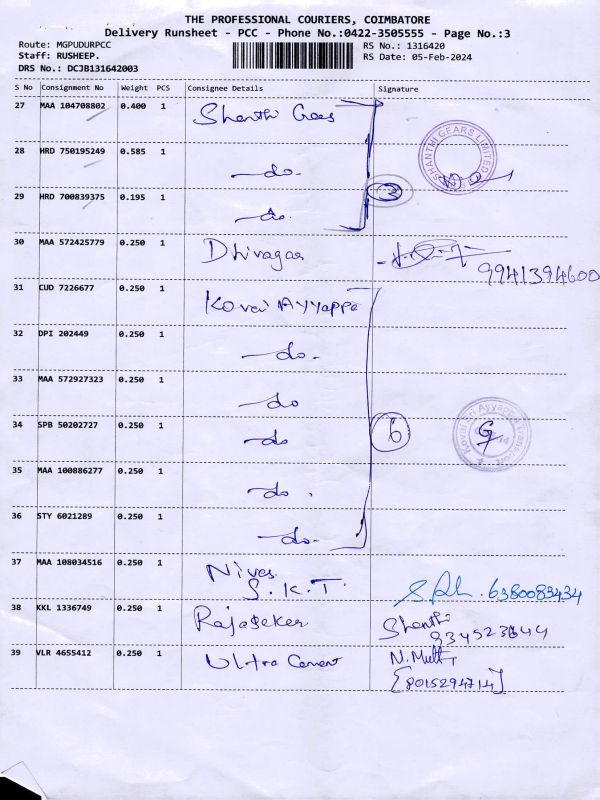 THE PROFESSIONAL COURIERS, COIMBATORE
Delivery Runsheet - PCC - Phone No.:0422-3505555 - Page No.:3
Route: MGPUDURPCC RS No.: 1316420
Staff: RUSHEEP. RS Date: 05-Feb-2024
DRS No.: DCJB131642003
S No Consignment No Weight PCS Consignee Details Signature
27 MAA 104708802 0.400 1 Shanthi Gears
SHANTHI GEARS LIMITED
28 HRD 750195249 0.585 1 -do-
29 HRD 700839375 0.195 1 -do-
30 MAA 572425779 0.250 1 Dhivagar
9941394600
31 CUD 7226677 0.250 1 Kovai Ayyappa
32 DPI 202449 0.250 1 -do-
33 MAA 572927323 0.250 1 -do
34 SPB 50202727 0.250 1 -do 6
Kovai Sri Ayyappa Transport
35 MAA 100886277 0.250 1 -do.
36 STY 6021289 0.250 1 -do-
37 MAA 108034516 0.250 1 Nives
S.K.T. 6380083434
38 KKL 1336749 0.250 1 Rajaseker Shanthi
39 VLR 4655412 0.250 1 Ultra Cement N.Muth
[8015294714]